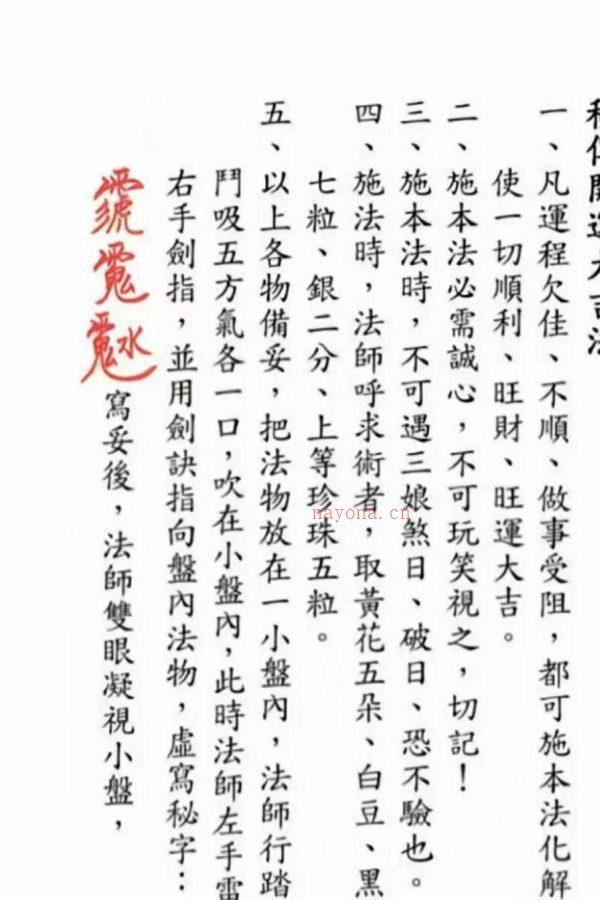 開運大吉法
一、凡運程欠佳、不順、做事受阻，都可施本法化解
使一切順利、旺財、旺運大吉。
二、施本法必需誠心，不可玩笑視之，切記！
三、施本法時，不可遇三娘煞日、破日、恐不驗也。
四、施法時，法師呼求術者，取黃花五朵、白豆、黑
七粒、銀二分、上等珍珠五粒。
五、以上各物備妥，把法物放在一小盤內，法師行踏
鬥吸五方氣各一口，吹在小盤內，此時法師左手雷
右手劍指，並用劍訣指向盤內法物，虛寫秘字：
寫妥後，法師雙眼凝視小盤，
nayona.cn